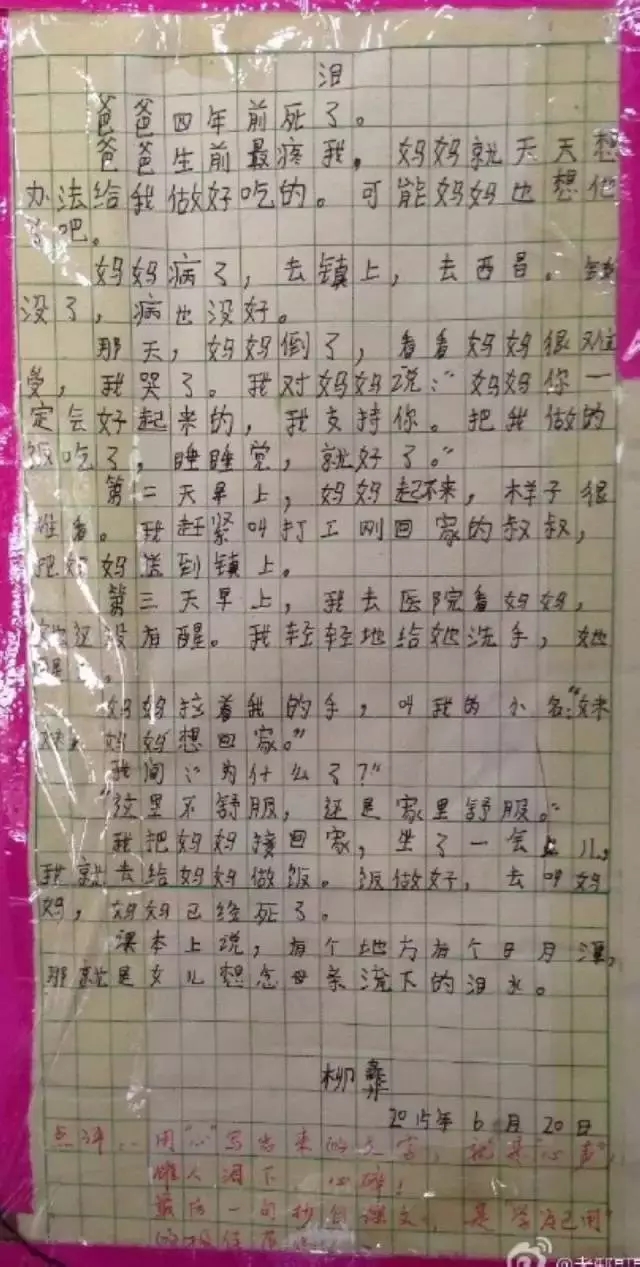 泪
爸爸四年前死了。
爸爸生前最疼我,妈妈就天天想
办法给我做好吃的。可能妈妈也想他
了吧。
妈妈病了,去镇上,去西昌。钱
没了,病也没好。
那天,妈妈倒了,看看妈妈很难
受,我哭了。我对妈妈说:“妈妈你一
定会好起来的,我支持你。把我做的
饭吃了,睡睡觉,就好了。”
第二天早上,妈妈起不来,样子很
难看。我赶紧叫打工刚回家的叔叔,
把妈妈送到镇上。
第三天早上,我去医院看妈妈,
她还没有醒。我轻轻地给她洗手,她
醒了。
妈妈拉着我的手,叫我的小名:“妹
妹,妈妈想回家。”
我问:“为什么了?”
“这里不舒服,还是家里舒服。”
我把妈妈接回家,坐了一会儿,
我就去给妈妈做饭。饭做好,去叫妈
妈,妈妈已经死了。
课本上说,有个地方有个日月潭,
那就是女儿想念母亲流下的泪水。
柳彝
2015年6月20日
点评:用“心”写出来的文字,就是“心声”,
催人泪下 心碎!
最后一句抄自课文,是“学为己用”